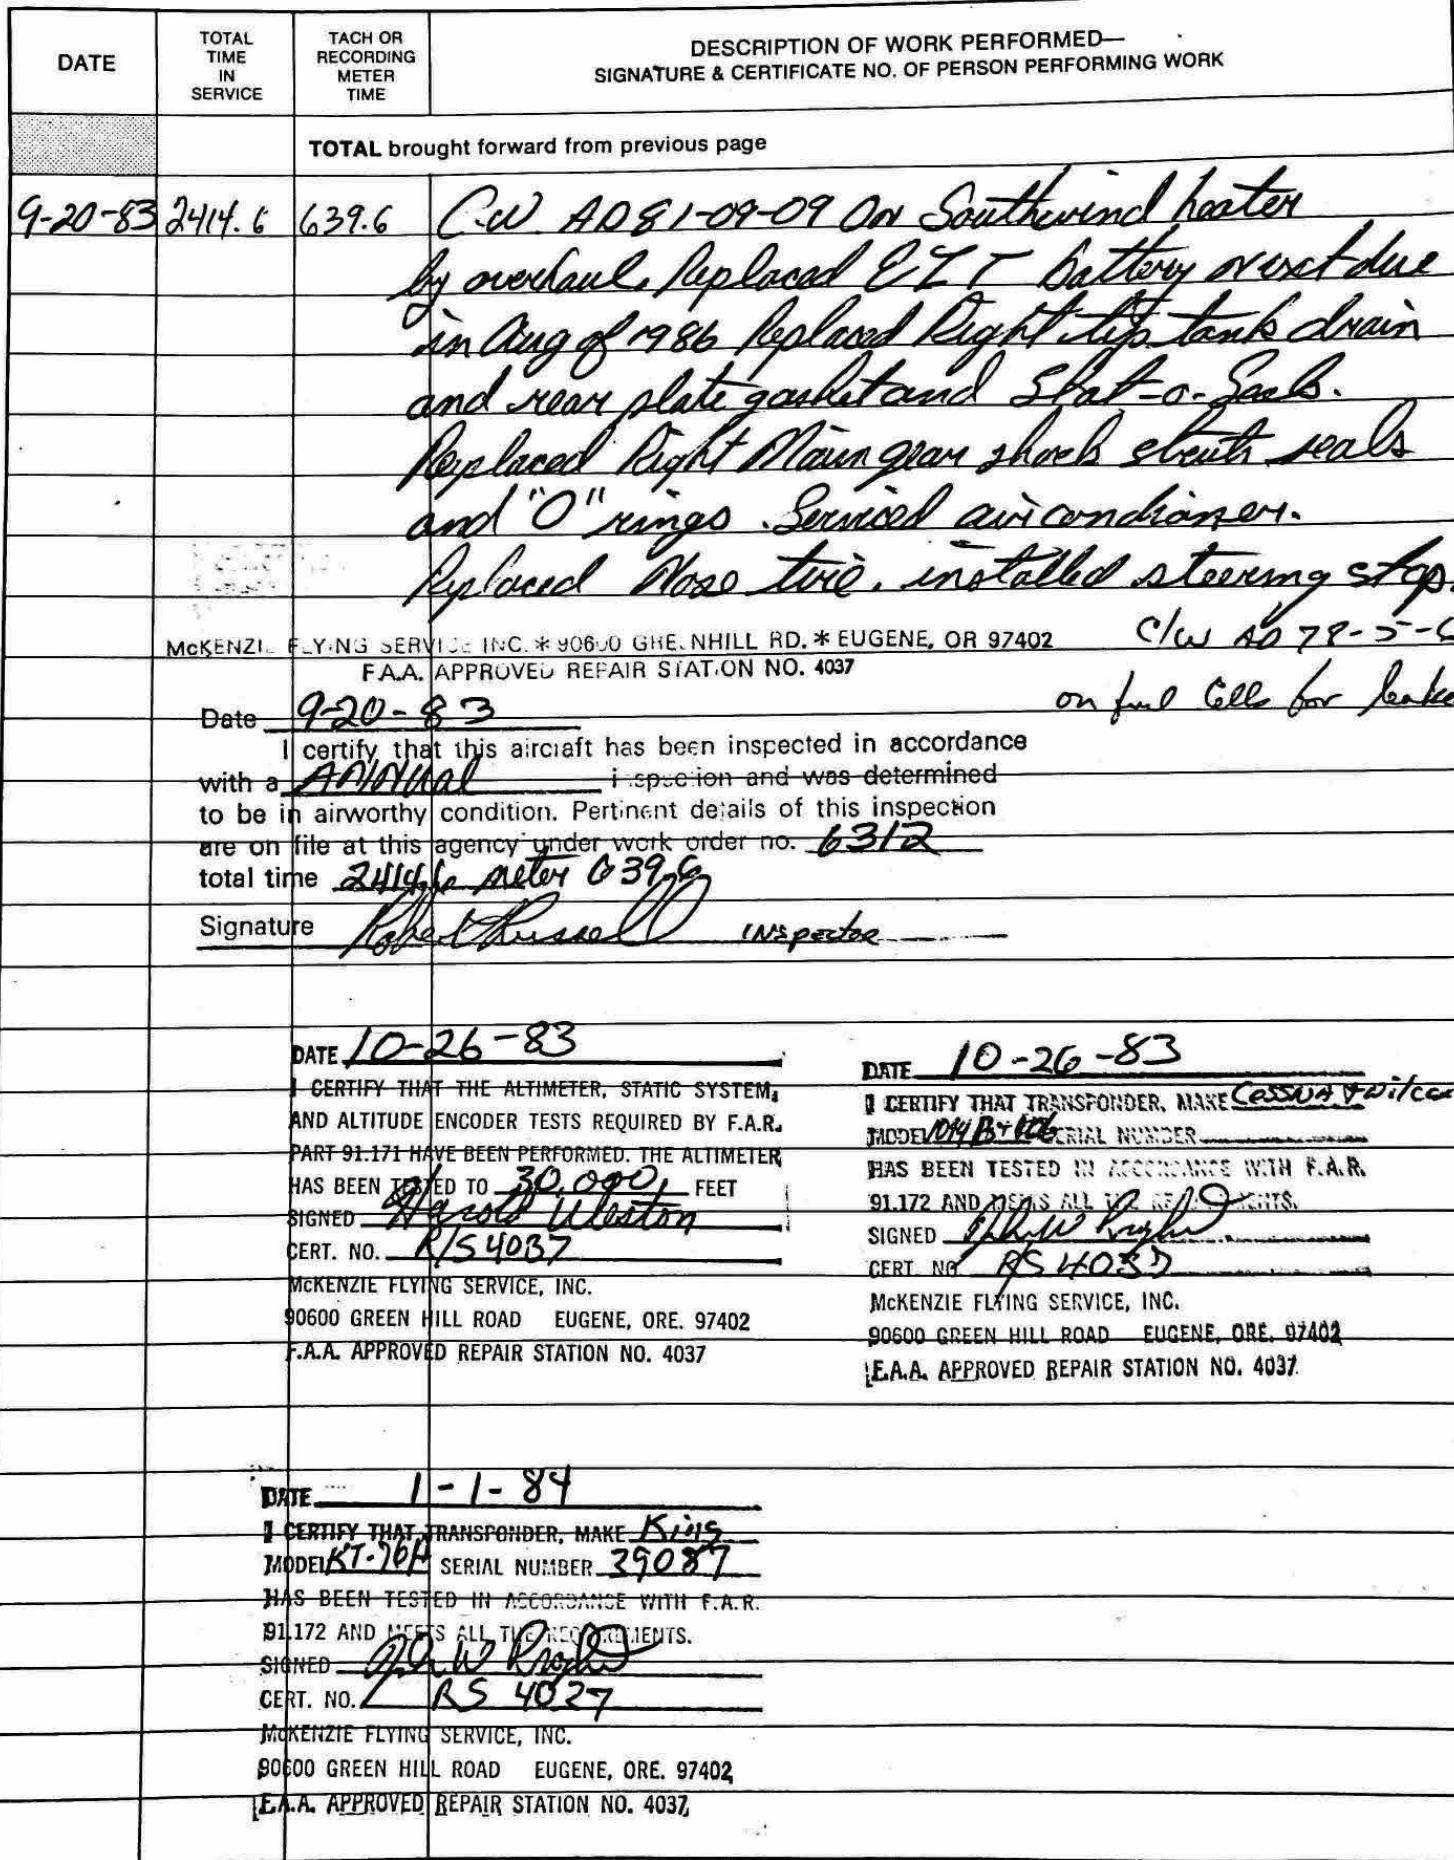 DATE
TOTAL TIME IN SERVICE
TACH OR RECORDING METER TIME
DESCRIPTION OF WORK PERFORMED—
SIGNATURE & CERTIFICATE NO. OF PERSON PERFORMING WORK
TOTAL brought forward from previous page
9-20-83 2414.6 639.6 C.W. AD81-09-09 On Southwind heater
by overhaul. Replaced ELT battery next due
in Aug of 1986 Replaced Right tip tank drain
and rear plate gasket and Stat-o-Seals.
Replaced Right Main gear shock struts seals
and "O" rings. Serviced aircondianer.
Replaced Nose tire. installed steering stop.
McKENZIE FLYING SERVICE INC. * 90600 GREENHILL RD. * EUGENE, OR 97402 C/W AD 79-5-6
F.A.A. APPROVED REPAIR STATION NO. 4037
on fuel Cells for leaks
Date 9-20-83
I certify that this aircraft has been inspected in accordance
with a Annual inspection and was determined
to be in airworthy condition. Pertinent details of this inspection
are on file at this agency under work order no. 6312
total time 2414.6 meter 639.6
Signature Robert Russell INspector
DATE 10-26-83
I CERTIFY THAT THE ALTIMETER, STATIC SYSTEM,
AND ALTITUDE ENCODER TESTS REQUIRED BY F.A.R.
PART 91.171 HAVE BEEN PERFORMED. THE ALTIMETER
HAS BEEN TESTED TO 30,000, FEET
SIGNED Harold Weston
CERT. NO. R/S 4037
McKENZIE FLYING SERVICE, INC.
90600 GREEN HILL ROAD EUGENE, ORE. 97402
F.A.A. APPROVED REPAIR STATION NO. 4037
DATE 10-26-83
I CERTIFY THAT TRANSPONDER, MAKE CESSNA & Wilcox
MODEL SERIAL NUMBER
HAS BEEN TESTED IN ACCORDANCE WITH F.A.R.
91.172 AND MEETS ALL THE REQUIREMENTS.
SIGNED
CERT. NO. RS 4037
McKENZIE FLYING SERVICE, INC.
90600 GREEN HILL ROAD EUGENE, ORE. 97402
F.A.A. APPROVED REPAIR STATION NO. 4037
DATE 1-1-84
I CERTIFY THAT TRANSPONDER, MAKE King
MODEL KT-76A SERIAL NUMBER 39087
HAS BEEN TESTED IN ACCORDANCE WITH F.A.R.
91.172 AND MEETS ALL THE REQUIREMENTS.
SIGNED
CERT. NO. RS 4037
McKENZIE FLYING SERVICE, INC.
90600 GREEN HILL ROAD EUGENE, ORE. 97402
F.A.A. APPROVED REPAIR STATION NO. 4037